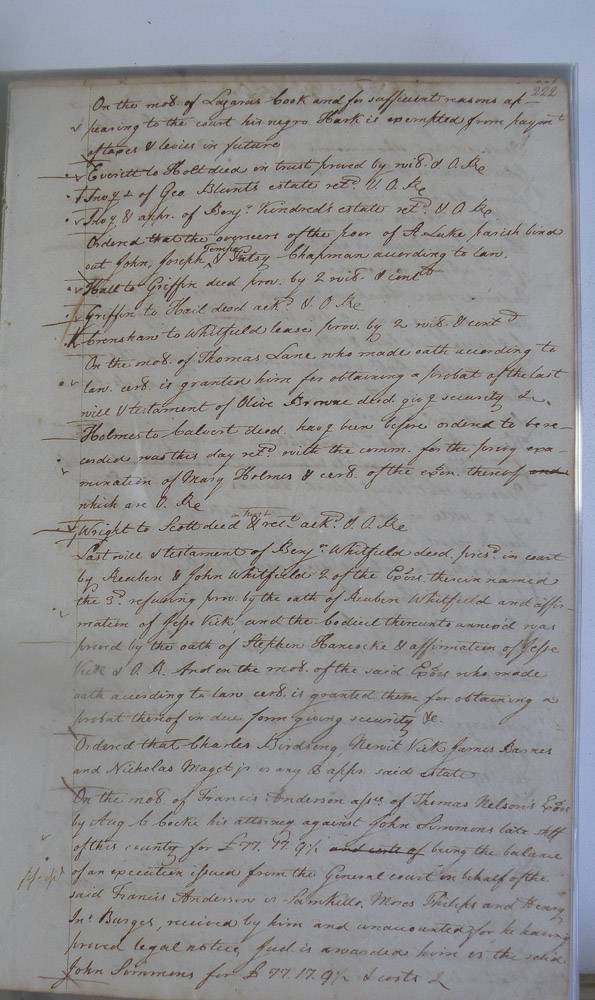 222
On the mo.n of Lazarus Cook and for sufficient reasons ap-
pearing to the court his negro Hark is exempted from paym.t
of taxes & levies in future
Everett to Holt deed in trust proved by wit.s & O. Re
Invoy of Geo Blunts estate ret.d & O. Re
Invoy & appr. of Benj.n Kindred's estate ret.d & O Re
Ordered that the overseers of the poor of St Luke parish bind
out John, Joseph, Tempe & Patsy Chapman according to law.
Hall to Griffin deed prov. by 2 wits & cont.d
Griffin to Hail deed ack.d & O. Re
Crenshaw to Whitfield lease prov. by 2 wits & cont.d
On the mo.n of Thomas Lane who made oath according to
law. cert. is granted him for obtaining a probat of the last
will & testament of Olive Browne deed. giv.g security &c.
Holmes to Calvert deed. hav.g been before ordered to be re-
corded was this day ret.d with the comm. for the privy exa-
mination of Mary Holmes & cert. of the exōn. thereof and
which are O. Re
Wright to Scott deed in trust & rec.t ack.d & O. Re
Last will & testament of Benj.n Whitfield deed. pres.d in court
by Reuben & John Whitfield 2 of the Exōrs. therein named
the 3.d refusing prov. by the oath of Reuben Whitfield and affir-
mation of Jesse Vick, and the Codicil thereunto annexed was
proved by the oath of Stephen Hancocke & affirmation of Jesse
Vick & O. R. And on the mo.n of the said Exōrs who made
oath according to law cert. is granted them for obtaining a
probat thereof in due form giving security &c.
Ordered that Charles Birdsong Newit Vick James Barnes
and Nicholas Maget jr or any 3 appr. said estate
On the mo.n of Francis Anderson ass.ee of Thomas Nelson's Exōrs
by Aug C Cocke his attorney against John Simmons late Shff
of this county for £77.17.9½ and costs of being the balance
of an execution issued from the General court on behalf of the
said Francis Anderson vs Sam Kello, Moses Philips and Henry
Jn.o Burges, received by him and unaccounted for he having
proved legal notice, Jud is awarded him vs the said
John Simmons for £77.17.9½ & costs